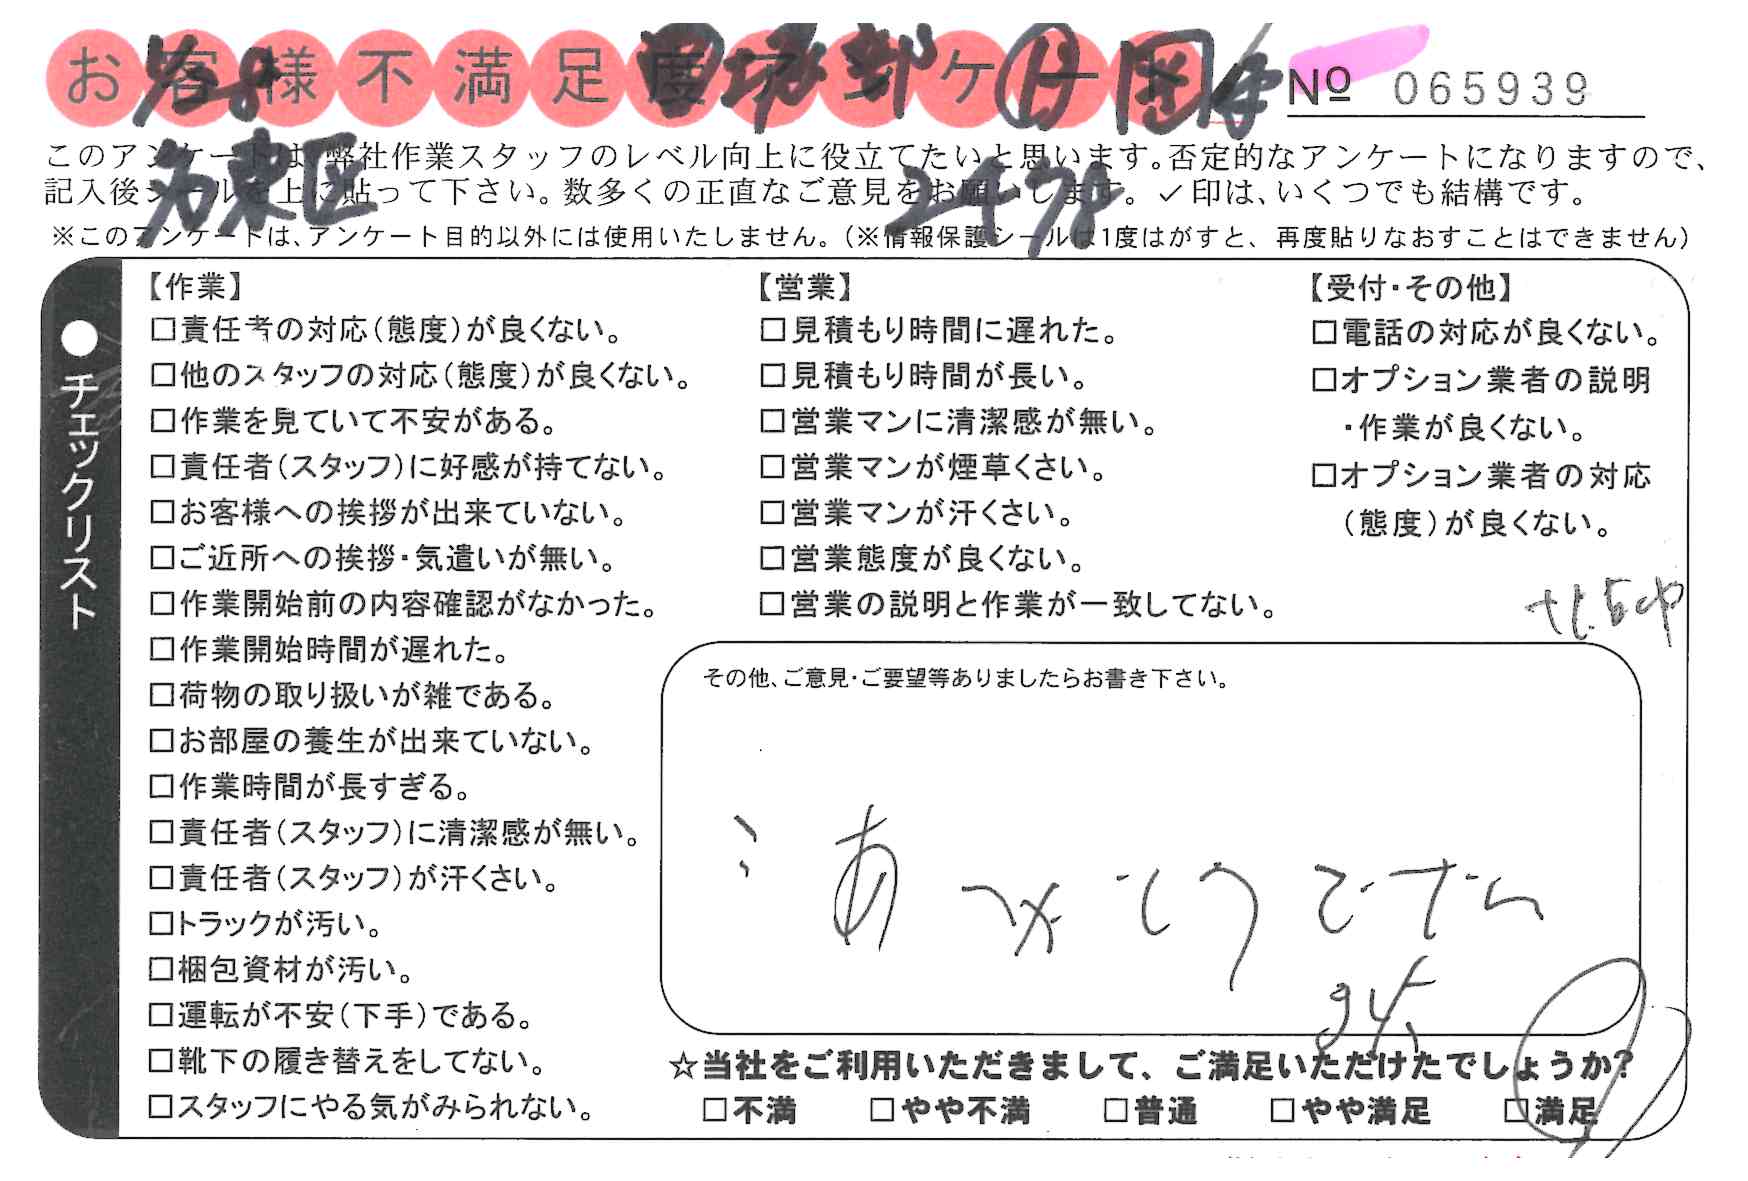 お客様不満足度アンケート
№ 065939
このアンケートは、弊社作業スタッフのレベル向上に役立てたいと思います。否定的なアンケートになりますので、
記入後シールを上に貼って下さい。数多くの正直なご意見をお願いします。✓印は、いくつでも結構です。
※このアンケートは、アンケート目的以外には使用いたしません。（※情報保護シールは1度はがすと、再度貼りなおすことはできません）
名東区
2478
●チェックリスト
【作業】
□責任者の対応（態度）が良くない。
□他のスタッフの対応（態度）が良くない。
□作業を見ていて不安がある。
□責任者（スタッフ）に好感が持てない。
□お客様への挨拶が出来ていない。
□ご近所への挨拶・気遣いが無い。
□作業開始前の内容確認がなかった。
□作業開始時間が遅れた。
□荷物の取り扱いが雑である。
□お部屋の養生が出来ていない。
□作業時間が長すぎる。
□責任者（スタッフ）に清潔感が無い。
□責任者（スタッフ）が汗くさい。
□トラックが汚い。
□梱包資材が汚い。
□運転が不安（下手）である。
□靴下の履き替えをしてない。
□スタッフにやる気がみられない。
【営業】
□見積もり時間に遅れた。
□見積もり時間が長い。
□営業マンに清潔感が無い。
□営業マンが煙草くさい。
□営業マンが汗くさい。
□営業態度が良くない。
□営業の説明と作業が一致してない。
【受付・その他】
□電話の対応が良くない。
□オプション業者の説明
・作業が良くない。
□オプション業者の対応
（態度）が良くない。
その他、ご意見・ご要望等ありましたらお書き下さい。
☆当社をご利用いただきまして、ご満足いただけたでしょうか？
□不満 □やや不満 □普通 □やや満足 □満足